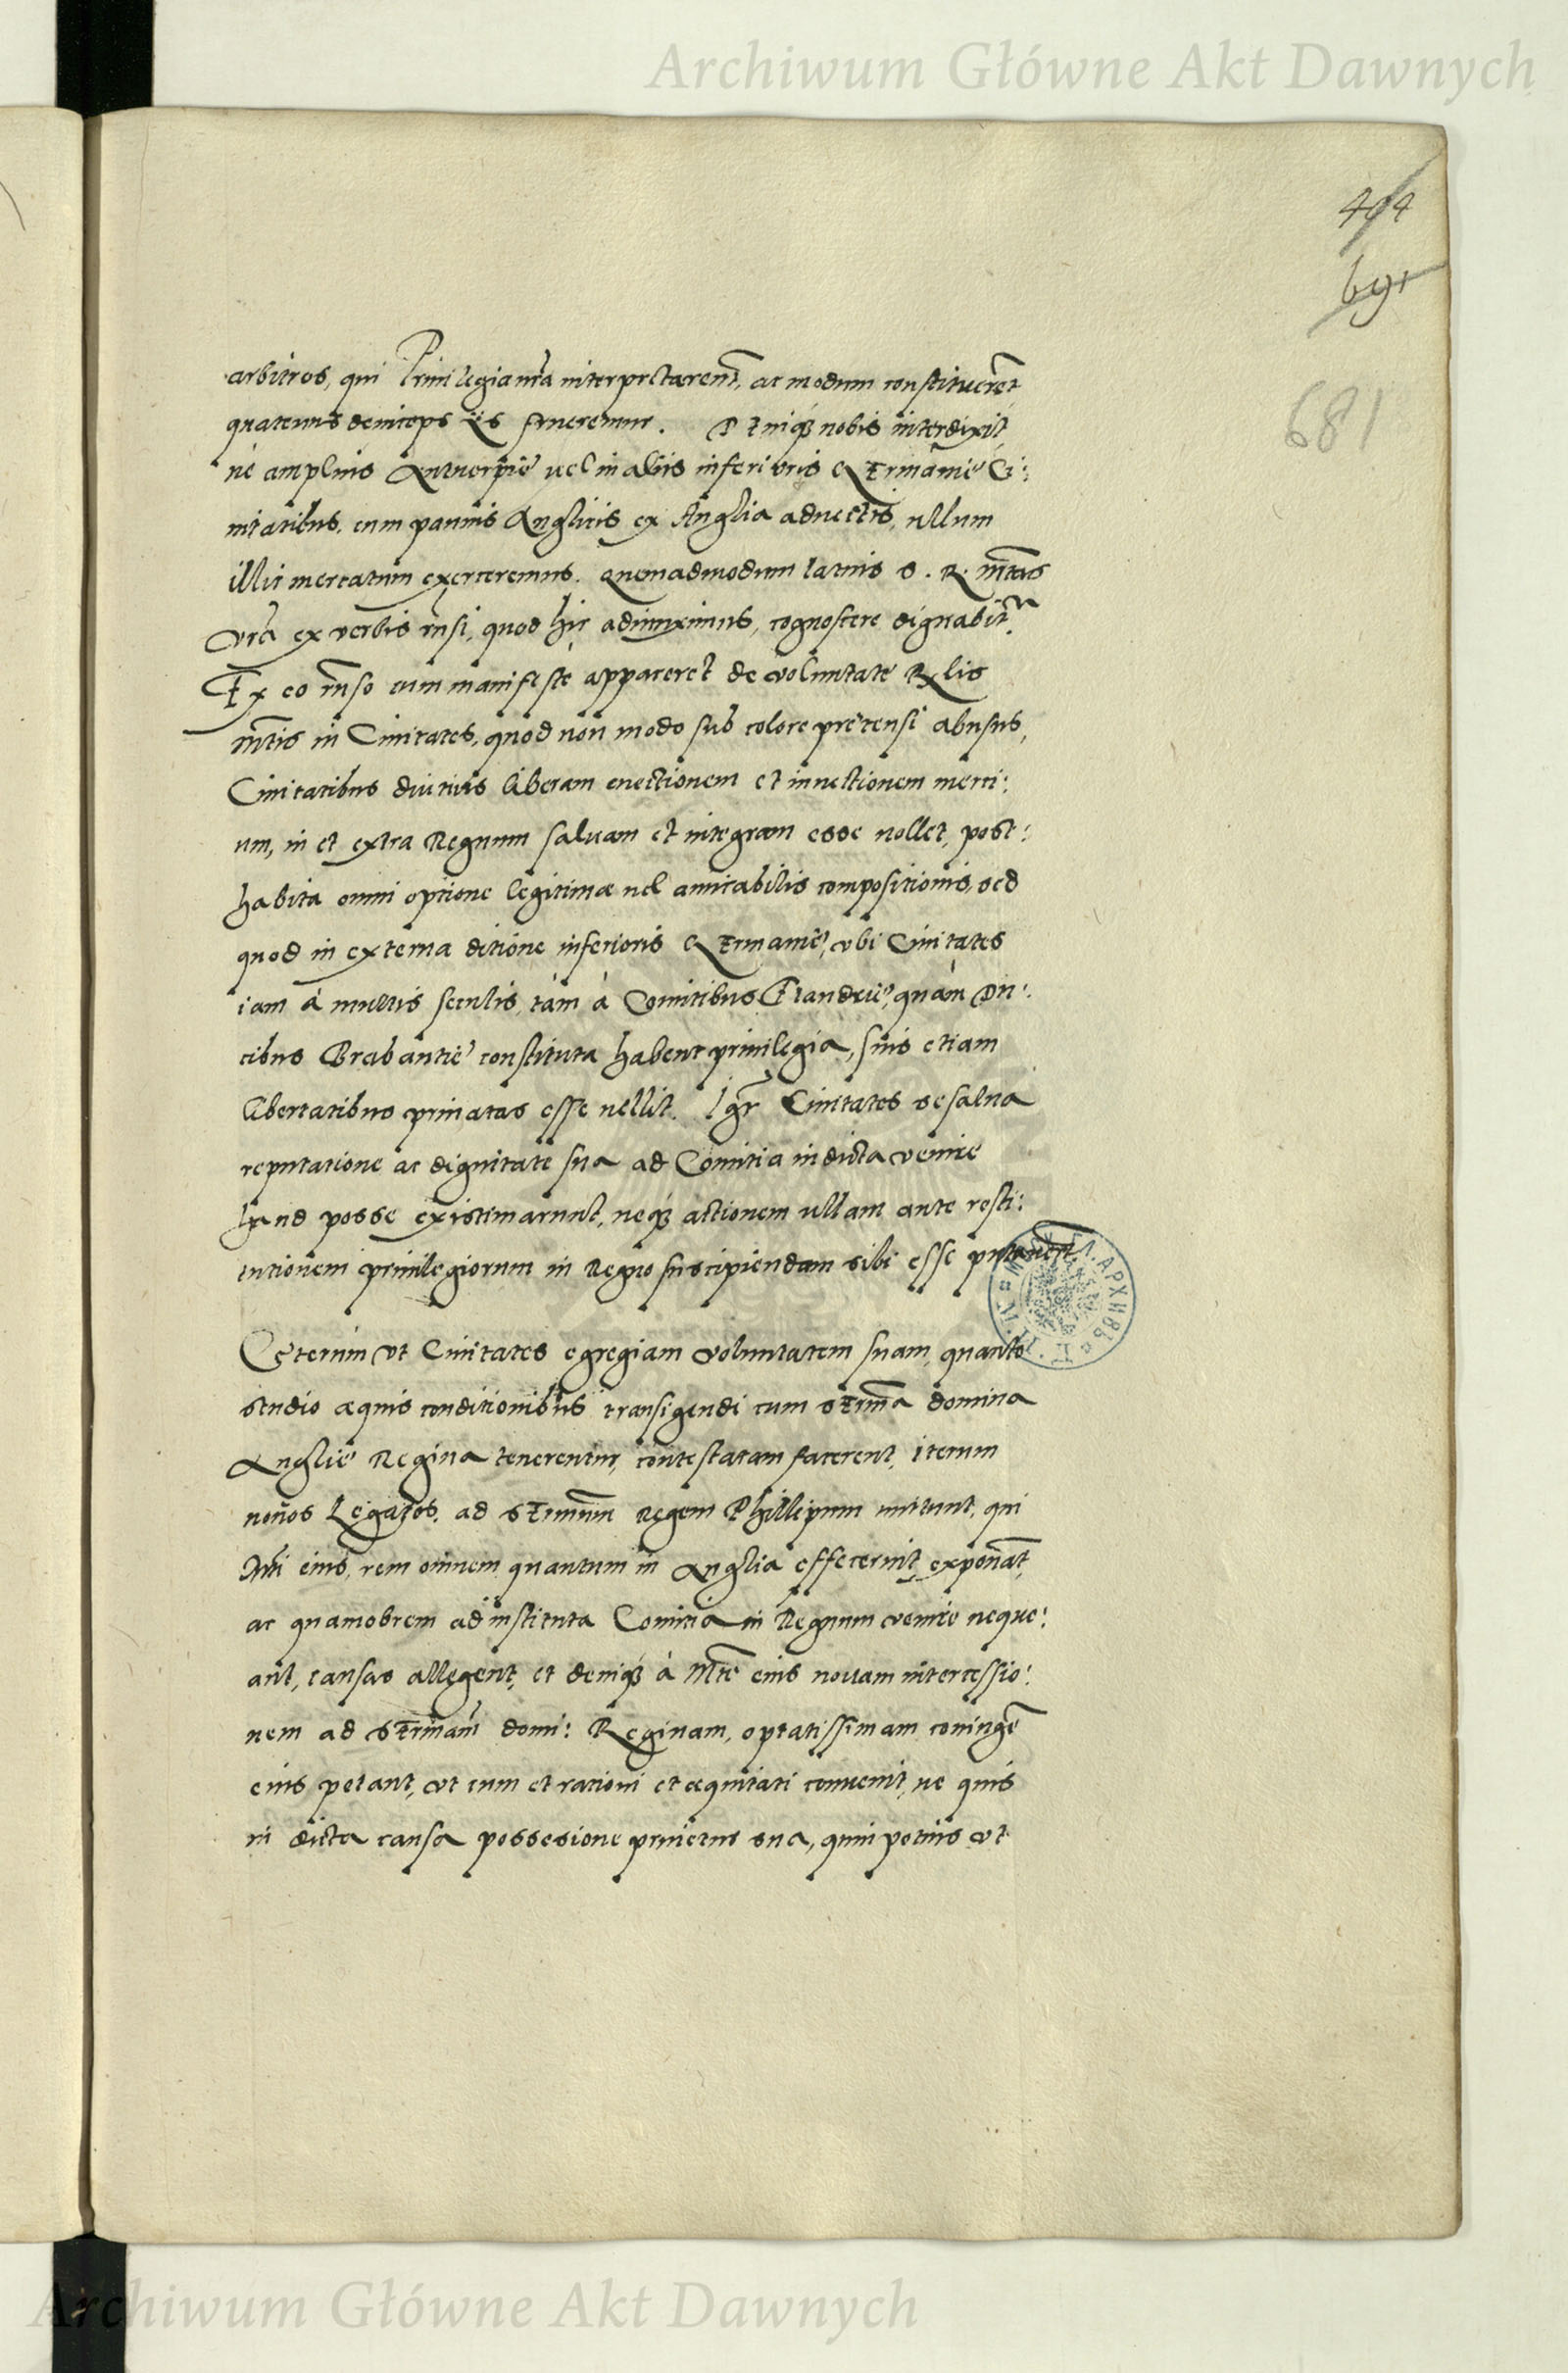 Archiwum Główne Akt Dawnych
414
691
681
arbitros, qui Privilegia nr̃a interpretarent̃, ac modum constituerẽt
quatenus deinceps ijs frueremur. Deniq́ꝫ nobis interdixit,
ne amplius Antuerpię vel in alijs inferioris Germanię Ci:
uitatibus, cum pannis Anglicis ex Anglia aduectis, ullum
illic mercatum exerceremus. Quemadmodum latius S. R. Mtas
Vrã ex verbis rñsi, quod hic adiunximus, cognoscere dignabit̃r.
Ex eo rñso cum manifestè appareret de voluntate Rglis
Mtis in Ciuitates, quod non modo sub colore prętensi abusus,
Ciuitatibus diutius liberam euectionem et inuectionem merci:
um, in et extra Regnum saluam et integram esse nollet, post:
habita omni optione legitimæ uel amicabilis compositionis, sed
quod in externa ditione inferioris Germanię, vbi Ciuitates
iam à multis seculis, tàm à Comitibus Flandrię, quàm Du:
cibus Brabantię constituta habent priuilegia, suis etiam
libertatibus priuatas esse vellit. Igr̃ Ciuitates se salua
reputatione ac dignitate sua ad Comitia indicta venire
haud posse existimarunt, neq́ꝫ actionem ullam ante resti:
tutionem priuilegiorum in Regno suscipiendam sibi esse putauerũt
Cęterum vt Ciuitates egregiam voluntatem suam, quanto
studio æquis conditionibus transigendi cum Serma domina
Anglię Regina tenerentur, contestatam facerent, iterum
nouos Legatos, ad Sermum Regem Phillipum mittunt, qui
Mti eius, rem omnem quantum in Anglia effecerint, exponãt,
ac quamobrem ad instituta Comitia in Regnum venire neque:
ant, causas allegent, et deniq́ꝫ à Mte eius nouam intercessio:
nem ad Sermam domi: Reginam, optatissimam coniugẽ
eius petant, vt cum et rationi et æquitati conuenit, ne quis
in dicta causa possesione priuetur sua, quin potius vt
Archiwum Główne Akt Dawnych